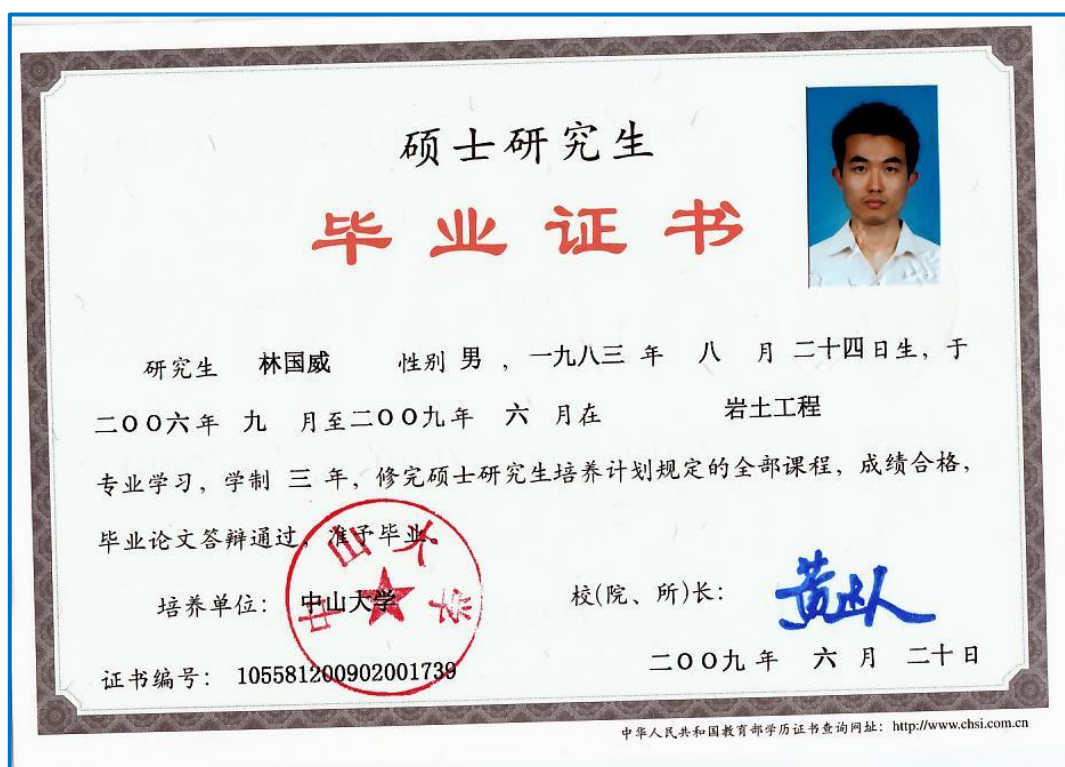 硕士研究生
毕业证书
研究生 林国威 性别 男 , 一九八三 年 八 月 二十四日生, 于
二OO六年 九 月至二OO九年 六 月在 岩土工程
专业学习, 学制 三 年, 修完硕士研究生培养计划规定的全部课程, 成绩合格,
毕业论文答辩通过, 准予毕业。
中山大学
培养单位: 中山大学 校(院、所)长: 黄达人
证书编号: 105581200902001739 二OO九 年 六 月 二十日
中华人民共和国教育部学历证书查询网址: http://www.chsi.com.cn